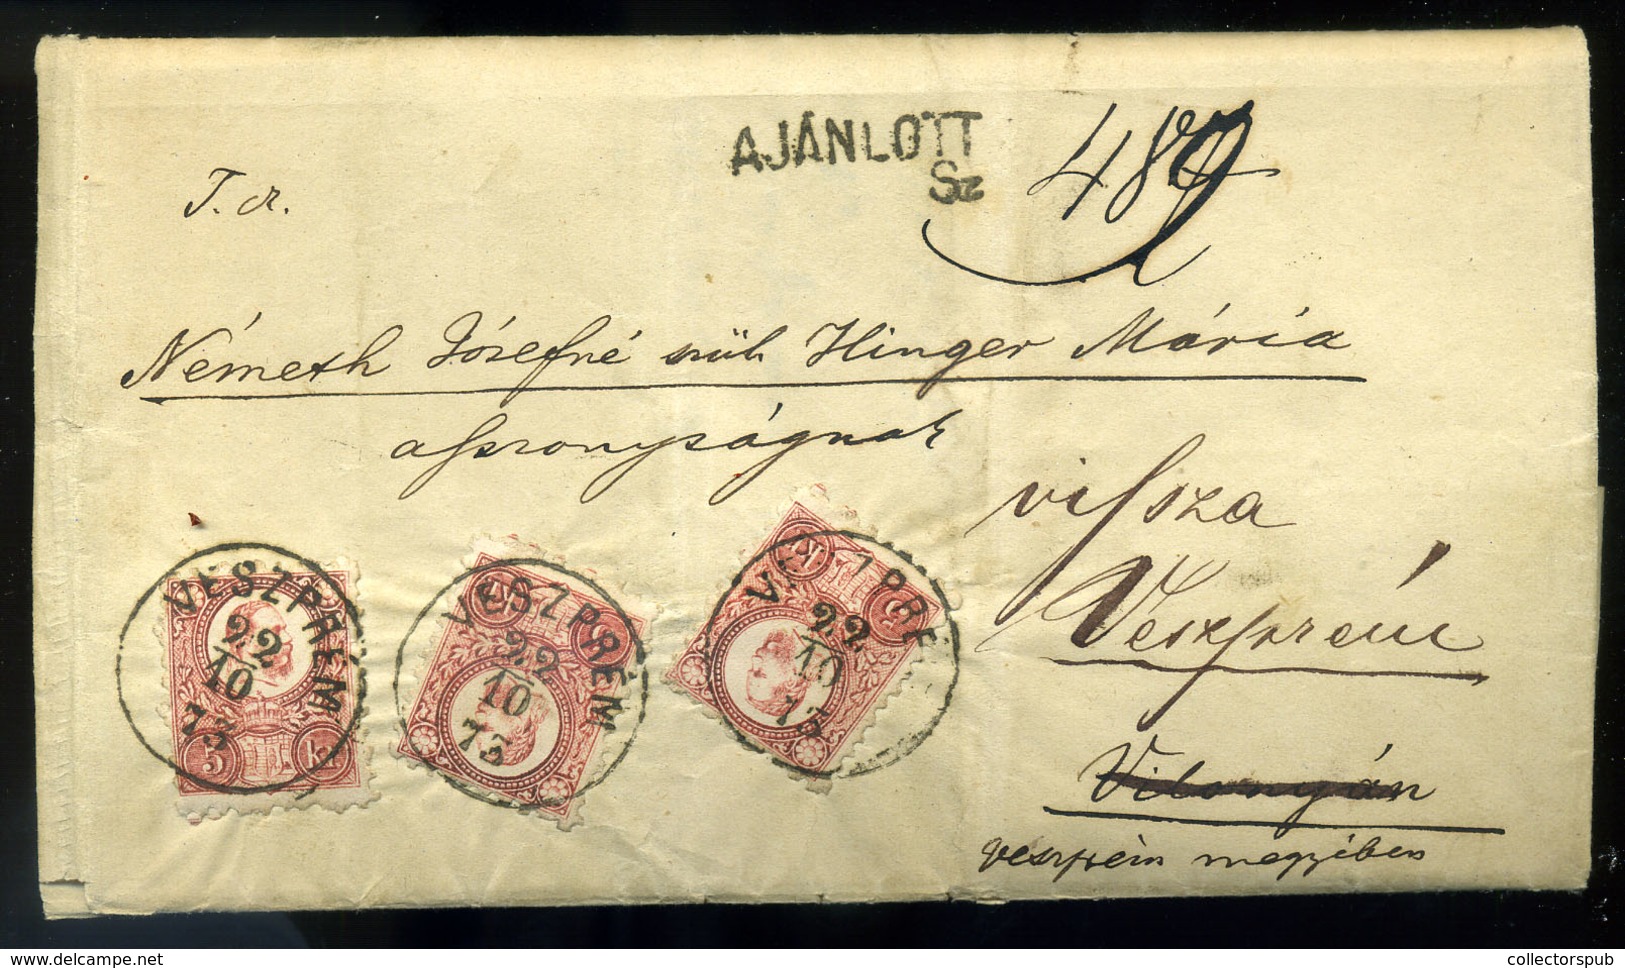 AJÁNLOTT
Sz
T. cz.
Németh Józsefné szül. Hinger Mária
asszonyságnak
vissza
Veszprém
Vilonyán
veszprém megyében
VESZPRÉM
22
10
73
5 kr
VESZPRÉM
22
10
73
5 kr
VESZPRÉM
22
10
73
5 kr
www.delcampe.net
collectorspub